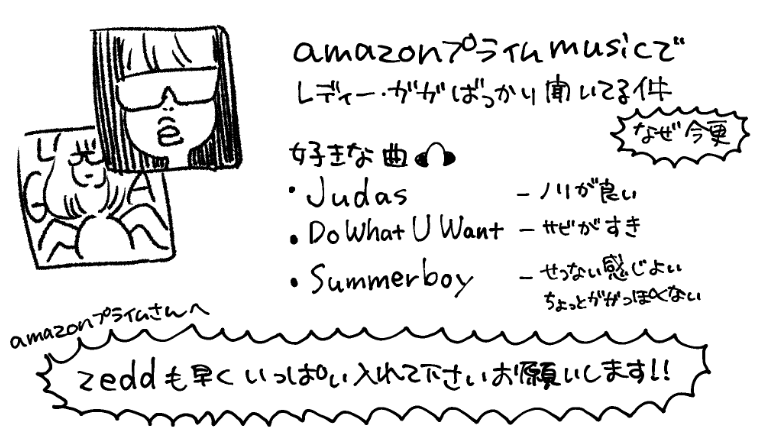 amazonプライムmusicで
レディー・ガガばっかり聞いてる件
なぜ今更
好きな曲
・Judas - ノリが良い
・Do What U Want - サビがすき
・Summerboy - せつない感じよい
ちょっとガガっぽくない
G U A
amazonプライムさんへ
zeddも早くいっぱい入れて下さいお願いします!!